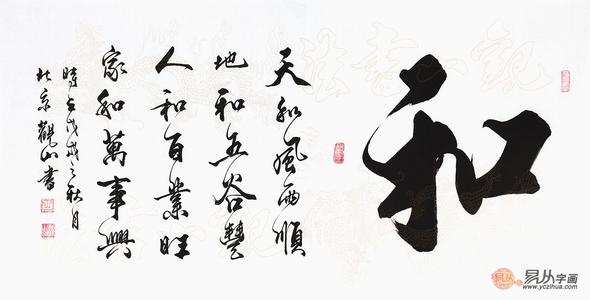 和
天和風雨順
地和五谷豐
人和百業旺
家和萬事興
時在戊戌之秋月
北京觀山書
易从字画
www.yczihua.com